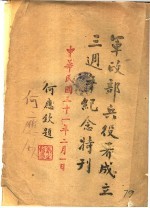 軍政部兵役署成立
三週年紀念特刊
中華民國三十一年二月一日
何應欽題